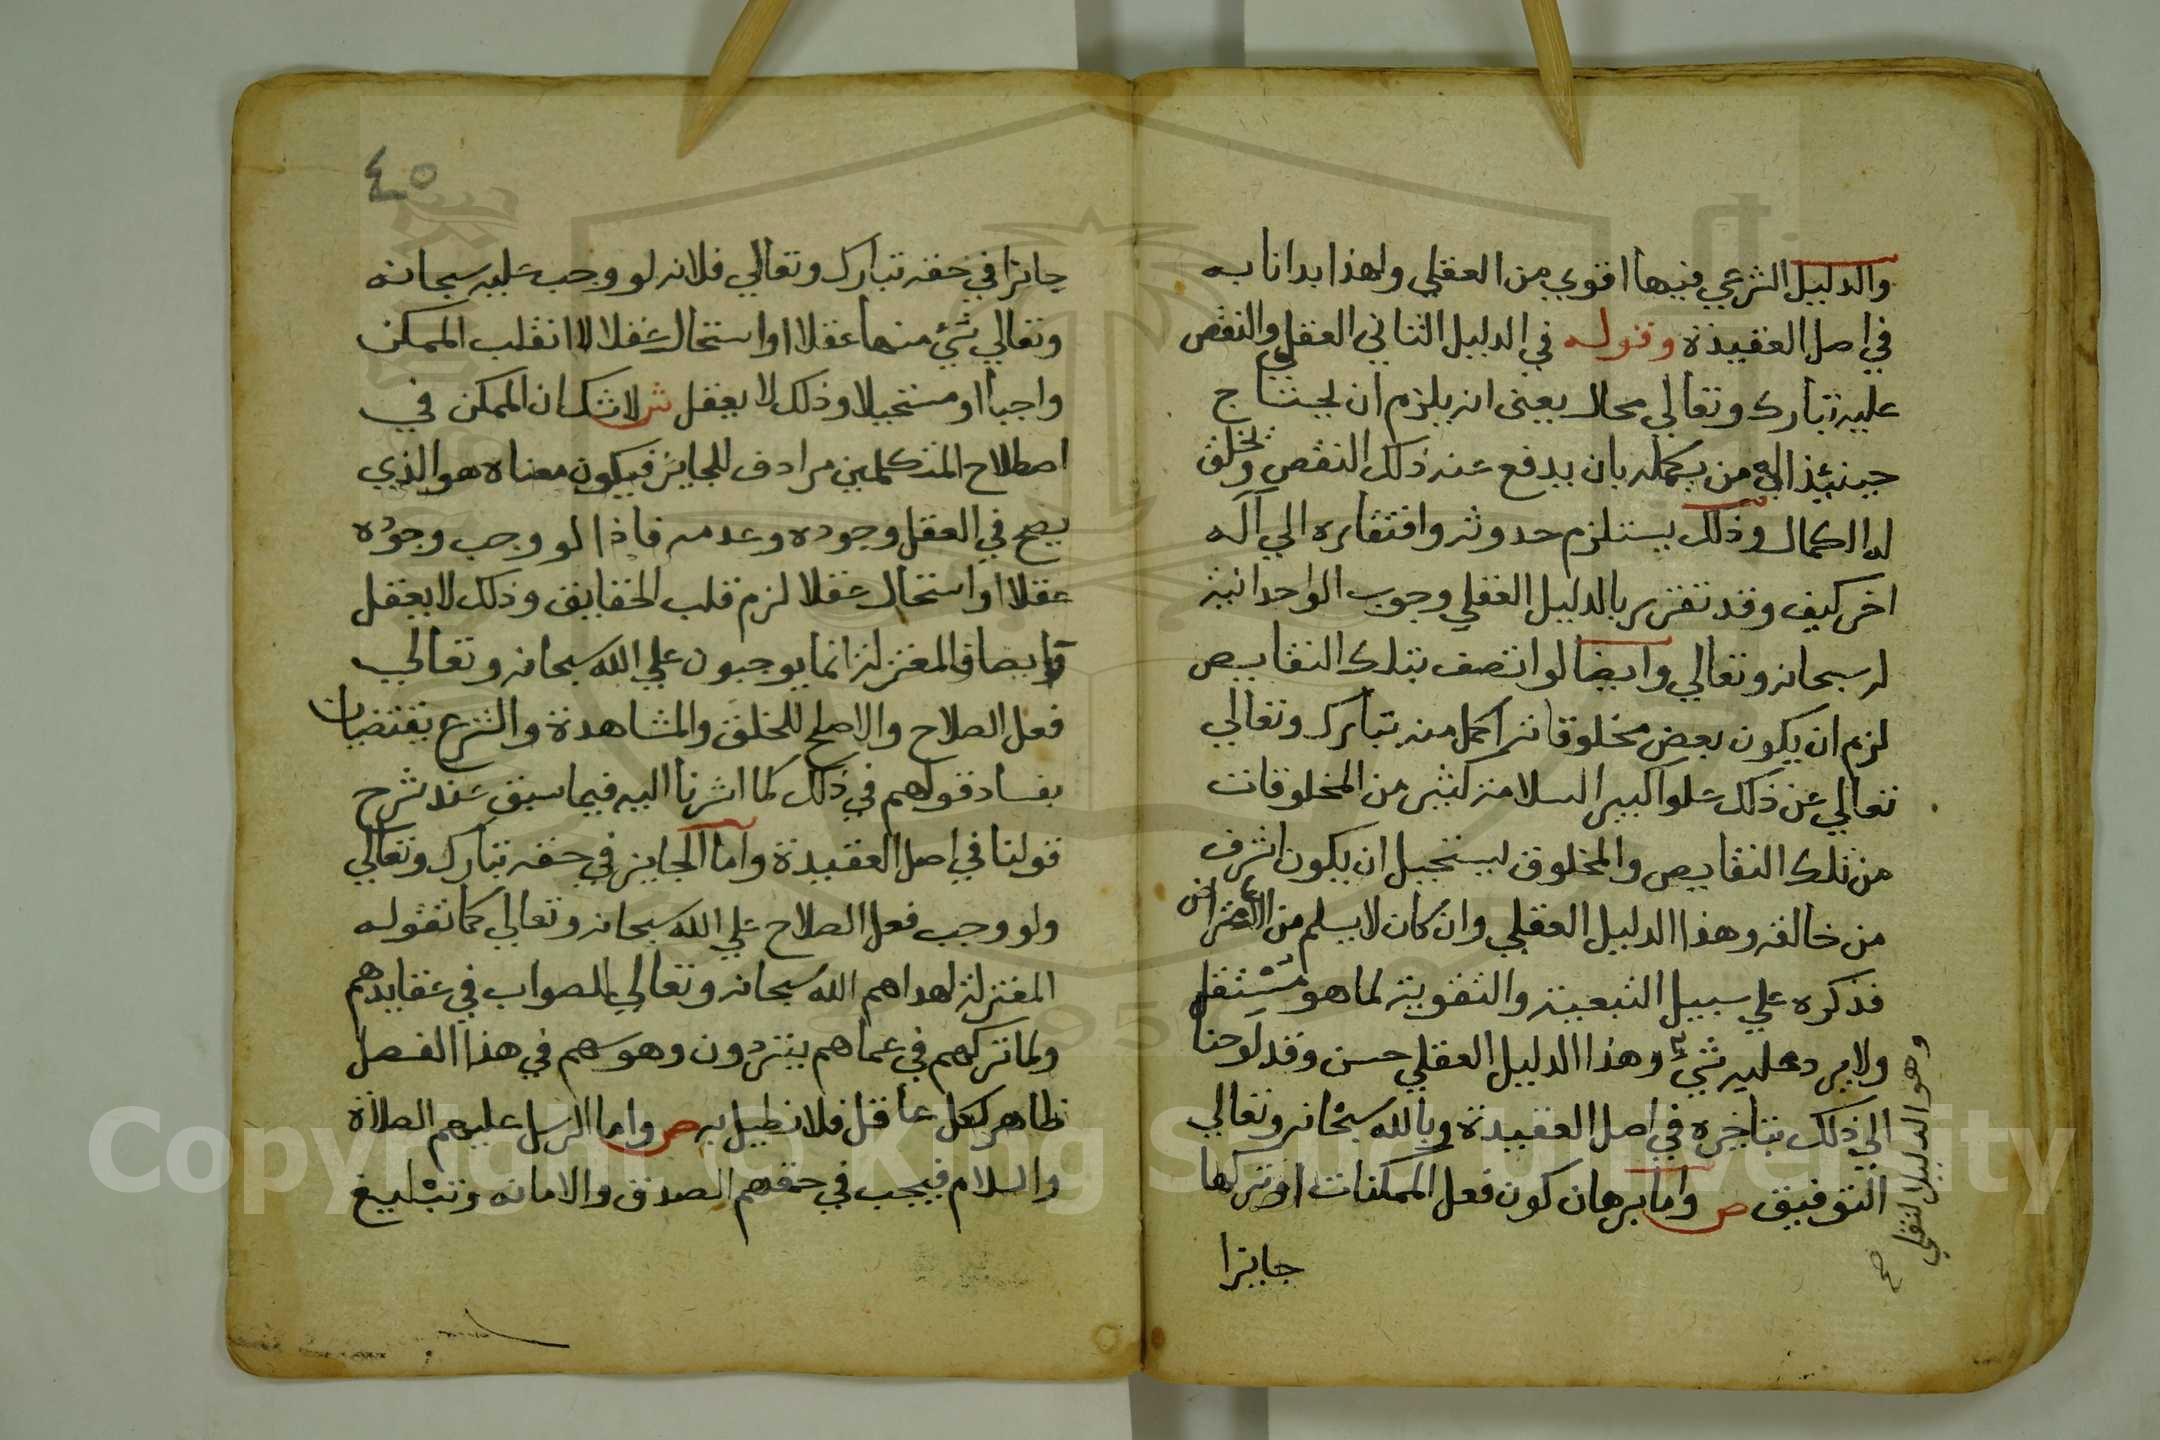 والدليل الشرعي فيها اقوي من العقلي ولهذا بدانا به
في اصل العقيدة وقوله في الدليل الثاني العقلي والنقص
عليه تبارك وتعالي محال يعني انه يلزم ان يحتاج
حينئذ الي من يكمله بان يدفع عنه ذلك النقص ويخلق
له الكمال وذلك يستلزم حدوثه وافتقاره الي اله
اخر كيف وقد تقرر بالدليل العقلي وجوب الواحدانية
له سبحانه وتعالي وايضا لو اتصف بتلك النقايص
لزم ان يكون بعض مخلوقاته اكمل منه تبارك وتعالي
تعالي عن ذلك علوا كبيرا لسلامة كثير من المخلوقات
من تلك النقايص والمخلوق يستحيل ان يكون اشرف
من خالقه وهذا الدليل العقلي وان كان لا يسلم من الاعتراض
فذكره علي سبيل التبعية والتقوية لما هو مستقل
ولا يرد عليه شيء وهذا الدليل العقلي حسن وقد لوحنا
الي ذلك بتاخيره في اصل العقيدة وبالله سبحانه وتعالي
التوفيق ص واما برهان كون فعل الممكنات او تركها
جايزا
وهو الدليل النقلي
صح
٤٥
جايزا في حقه تبارك وتعالي فلانه لو وجب عليه سبحانه
وتعالي شيء منها عقلا او استحال عقلا لا انقلب الممكن
واجبا او مستحيلا وذلك لا يعقل ش لا شك ان الممكن في
اصطلاح المتكلمين مرادف للجايز فيكون معناه هو الذي
يصح في العقل وجوده وعدمه فاذا لو وجب وجوده
عقلا او استحال عقلا لزم قلب الحقايق وذلك لا يعقل
وايضا فالمعتزلة انما يوجبون علي الله سبحانه وتعالي
فعل الصلاح والاصلح للخلق والمشاهدة والشرع يقتضيان
بفساد قولهم في ذلك كما اشرنا اليه فيما سبق عند شرح
قولنا في اصل العقيدة واما الجايز في حقه تبارك وتعالي
ولو وجب فعل الصلاح علي الله سبحانه وتعالي كما تقوله
المعتزلة لهداهم الله سبحانه وتعالي للصواب في عقايدهم
ولما تركهم في عماهم يتردون وهوسهم في هذا الفصل
ظاهر لكل عاقل فلا نطيل به ص واما الرسل عليهم الصلاة
والسلام فيجب في حقهم الصدق والامانه وتبليغ
Copyright © King Saud University